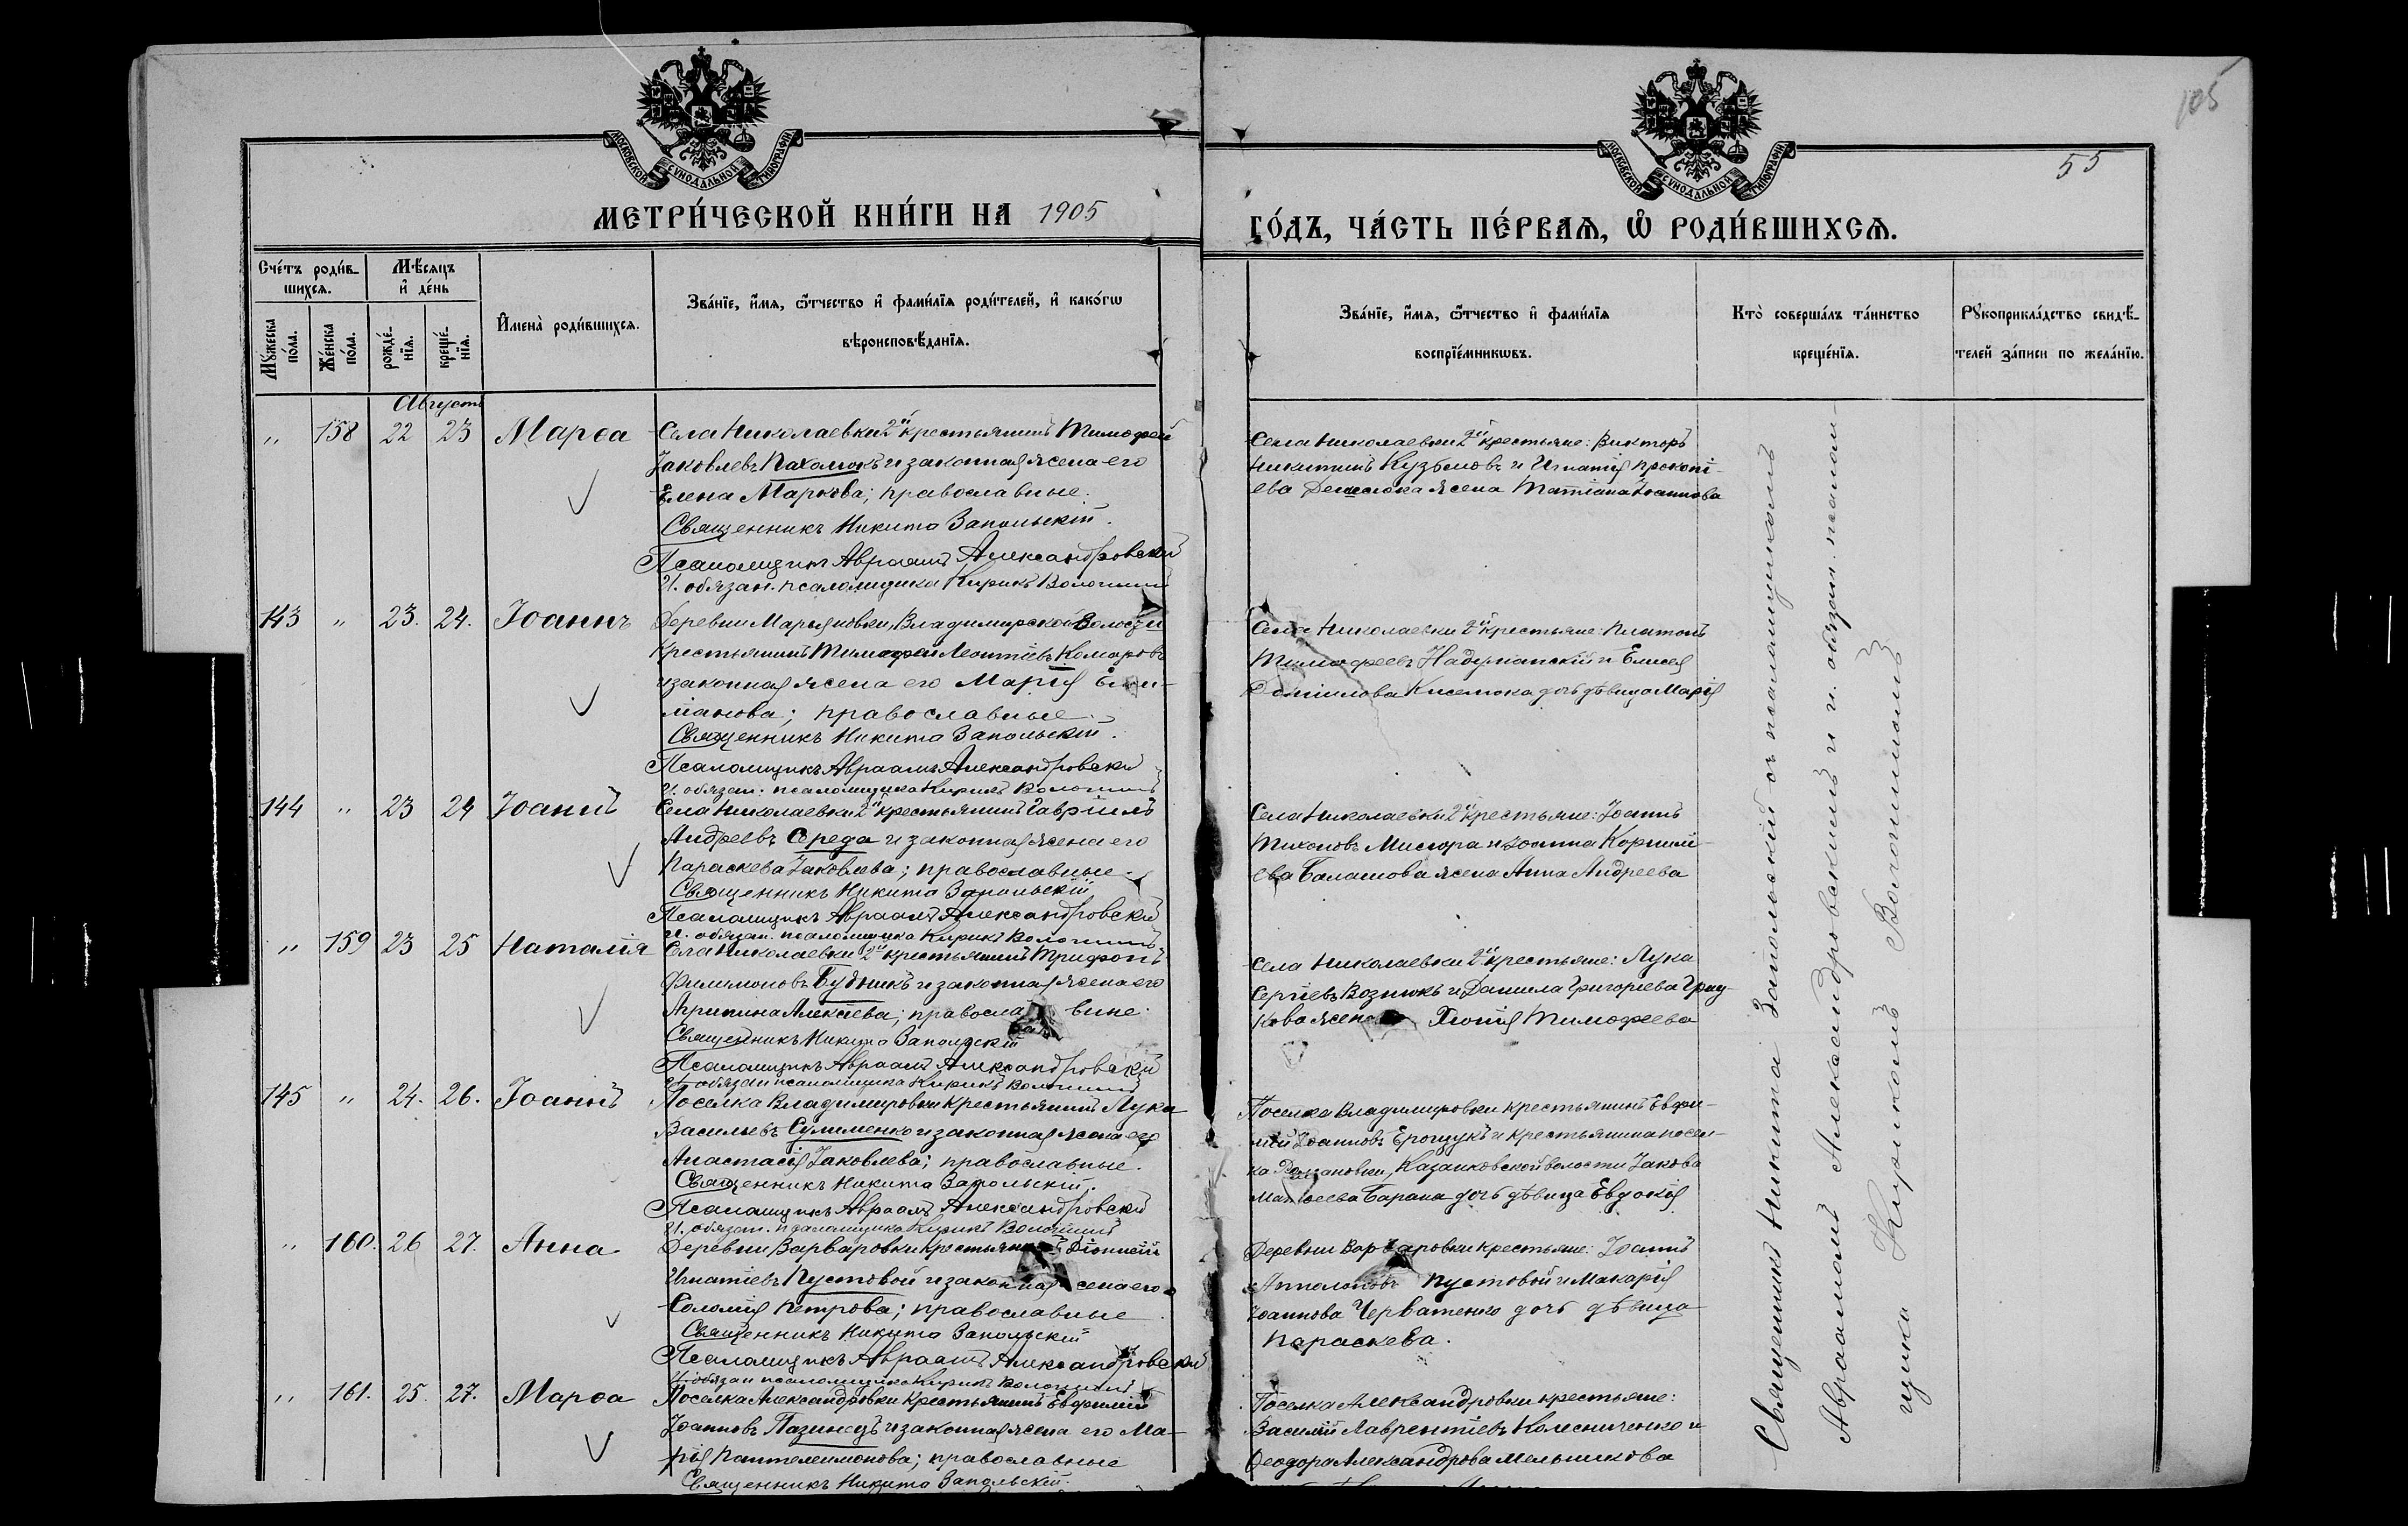 105
55
МОСКОВСКОЙ СѴНОДАЛЬНОЙ ТИПОГРАФІИ
МОСКОВСКОЙ СѴНОДАЛЬНОЙ ТИПОГРАФІИ
МЕТРИ́ЧЕСКОЙ КНИ́ГИ НА 1905
ГО́ДЪ, ЧА́СТЬ ПЕ́РВАѦ, Ѡ҆ РОДИ́ВШИХСѦ.
Сче́тъ роди́в-
шихсѧ.
Мꙋ́жеска по́ла.
Же́нска по́ла.
Мѣ́сѧцъ
и҆ де́нь
рожде́-нїѧ.
креще́-нїѧ.
И҆мена̀ роди́вшихсѧ.
Зва́нїе, и҆́мѧ, ѻ҆́тчество и҆ фами́лїѧ роди́телей, и҆ како́гѡ
вѣроисповѣ́данїѧ.
Зва́нїе, и҆́мѧ, ѻ҆́тчество и҆ фами́лїѧ
воспрїе́мникѡвъ.
Кто̀ соверша́лъ та́инство
креще́нїѧ.
Рꙋкоприкла́дство свидѣ́-
телей за́писи по жела́нїю.
Августъ
" 158 22 23 Марѳа Села Николаевки 2й крестьянинъ Тимофей
Іаковлевъ Пахомокъ и законная жена его
Елена Маркова; православные.
Священникъ Никита Запольскій.
Псаломщикъ Авраамъ Александровскій
И. обязан. псаломщика Кирикъ Волошинъ
Села Николаевки 2й крестьяне: Викторъ
Никитинъ Кузьмовъ и Игнатія Прокопі-
ева жена Татіана Іоаннова
143 " 23. 24. Іоаннъ Деревни Марьяновки, Владимірской Волости
крестьянинъ Тимофей Леонтіевъ Комаровъ
и законная жена его Марія
православные.
Священникъ Никита Запольскій.
Псаломщикъ Авраамъ Александровскій
И. обязан. псаломщика Кирикъ Волошинъ
Села Николаевки 2й крестьяне: Платонъ
Тимофеевъ и Елисея
Даніилова Киселюка дочь дѣвица Марія
144 " 23 24 Іоаннъ Села Николаевки 2й крестьянинъ Гавріилъ
Андреевъ Середа и законная жена его
Параскева Іаковлева; православные.
Священникъ Никита Запольскій
Псаломщикъ Авраамъ Александровскій
И. обязан. псаломщика Кирикъ Волошинъ
Села Николаевки 2й крестьяне: Іоаннъ
Тихоновъ Мисюра и Іоанна Корнилі-
ева Балашова жена Анна Андреева
" 159 23 25 Наталія Села Николаевки 2й крестьянинъ Трифонъ
Филимоновъ Будникъ и законная жена его
Агрипина Алексіева; православные.
Священникъ Никита Запольскій
Псаломщикъ Авраамъ Александровскій
И. обязан. псаломщика Кирикъ Волошинъ
Села Николаевки 2й крестьяне: Лука
Сергіевъ Вознюкъ и Даніила Григорьева
жена Хіонія Тимофеева
145 " 24. 26. Іоаннъ Поселка Владиміровки крестьянинъ Лука
Васильевъ Сулименко и законная жена его
Анастасія Іаковлева; православные.
Священникъ Никита Запольскій.
Псаломщикъ Авраамъ Александровскій
И. обязан. псаломщика Кирикъ Волошинъ
Поселка Владиміровки крестьянинъ Евфи-
мій Іоанновъ Ерощукъ и крестьянина посел-
ка Казанковской волости Іакова
Матѳеева Барана дочь дѣвица Евдокія
" 160. 26 27. Анна Деревни Варваровки крестьянинъ Діонисій
Игнатіевъ Пустовой и законная жена его
Соломія Петрова; православные.
Священникъ Никита Запольскій
Псаломщикъ Авраамъ Александровскій
И. обязан. псаломщика Кирикъ Волошинъ
Деревни Варваровки крестьяне: Іоаннъ
Апполоновъ Пустовой и Макарія
Іоаннова Черватенко дочь дѣвица
Параскева.
" 161. 25. 27. Марѳа Поселка Александровки крестьянинъ Евфимій
Іоанновъ Пазинецъ и законная жена его Ма-
рія Пантелеимонова; православные
Священникъ Никита Запольскій.
Поселка Александровки крестьяне:
Василій Лаврентіевъ Колесниченко и
Ѳеодора Александрова Мельникова
Священникъ Никита Запольскій съ псаломщикомъ
Авраамомъ Александровскимъ и и. обязан. псалом-
щика Кирикомъ Волошинымъ